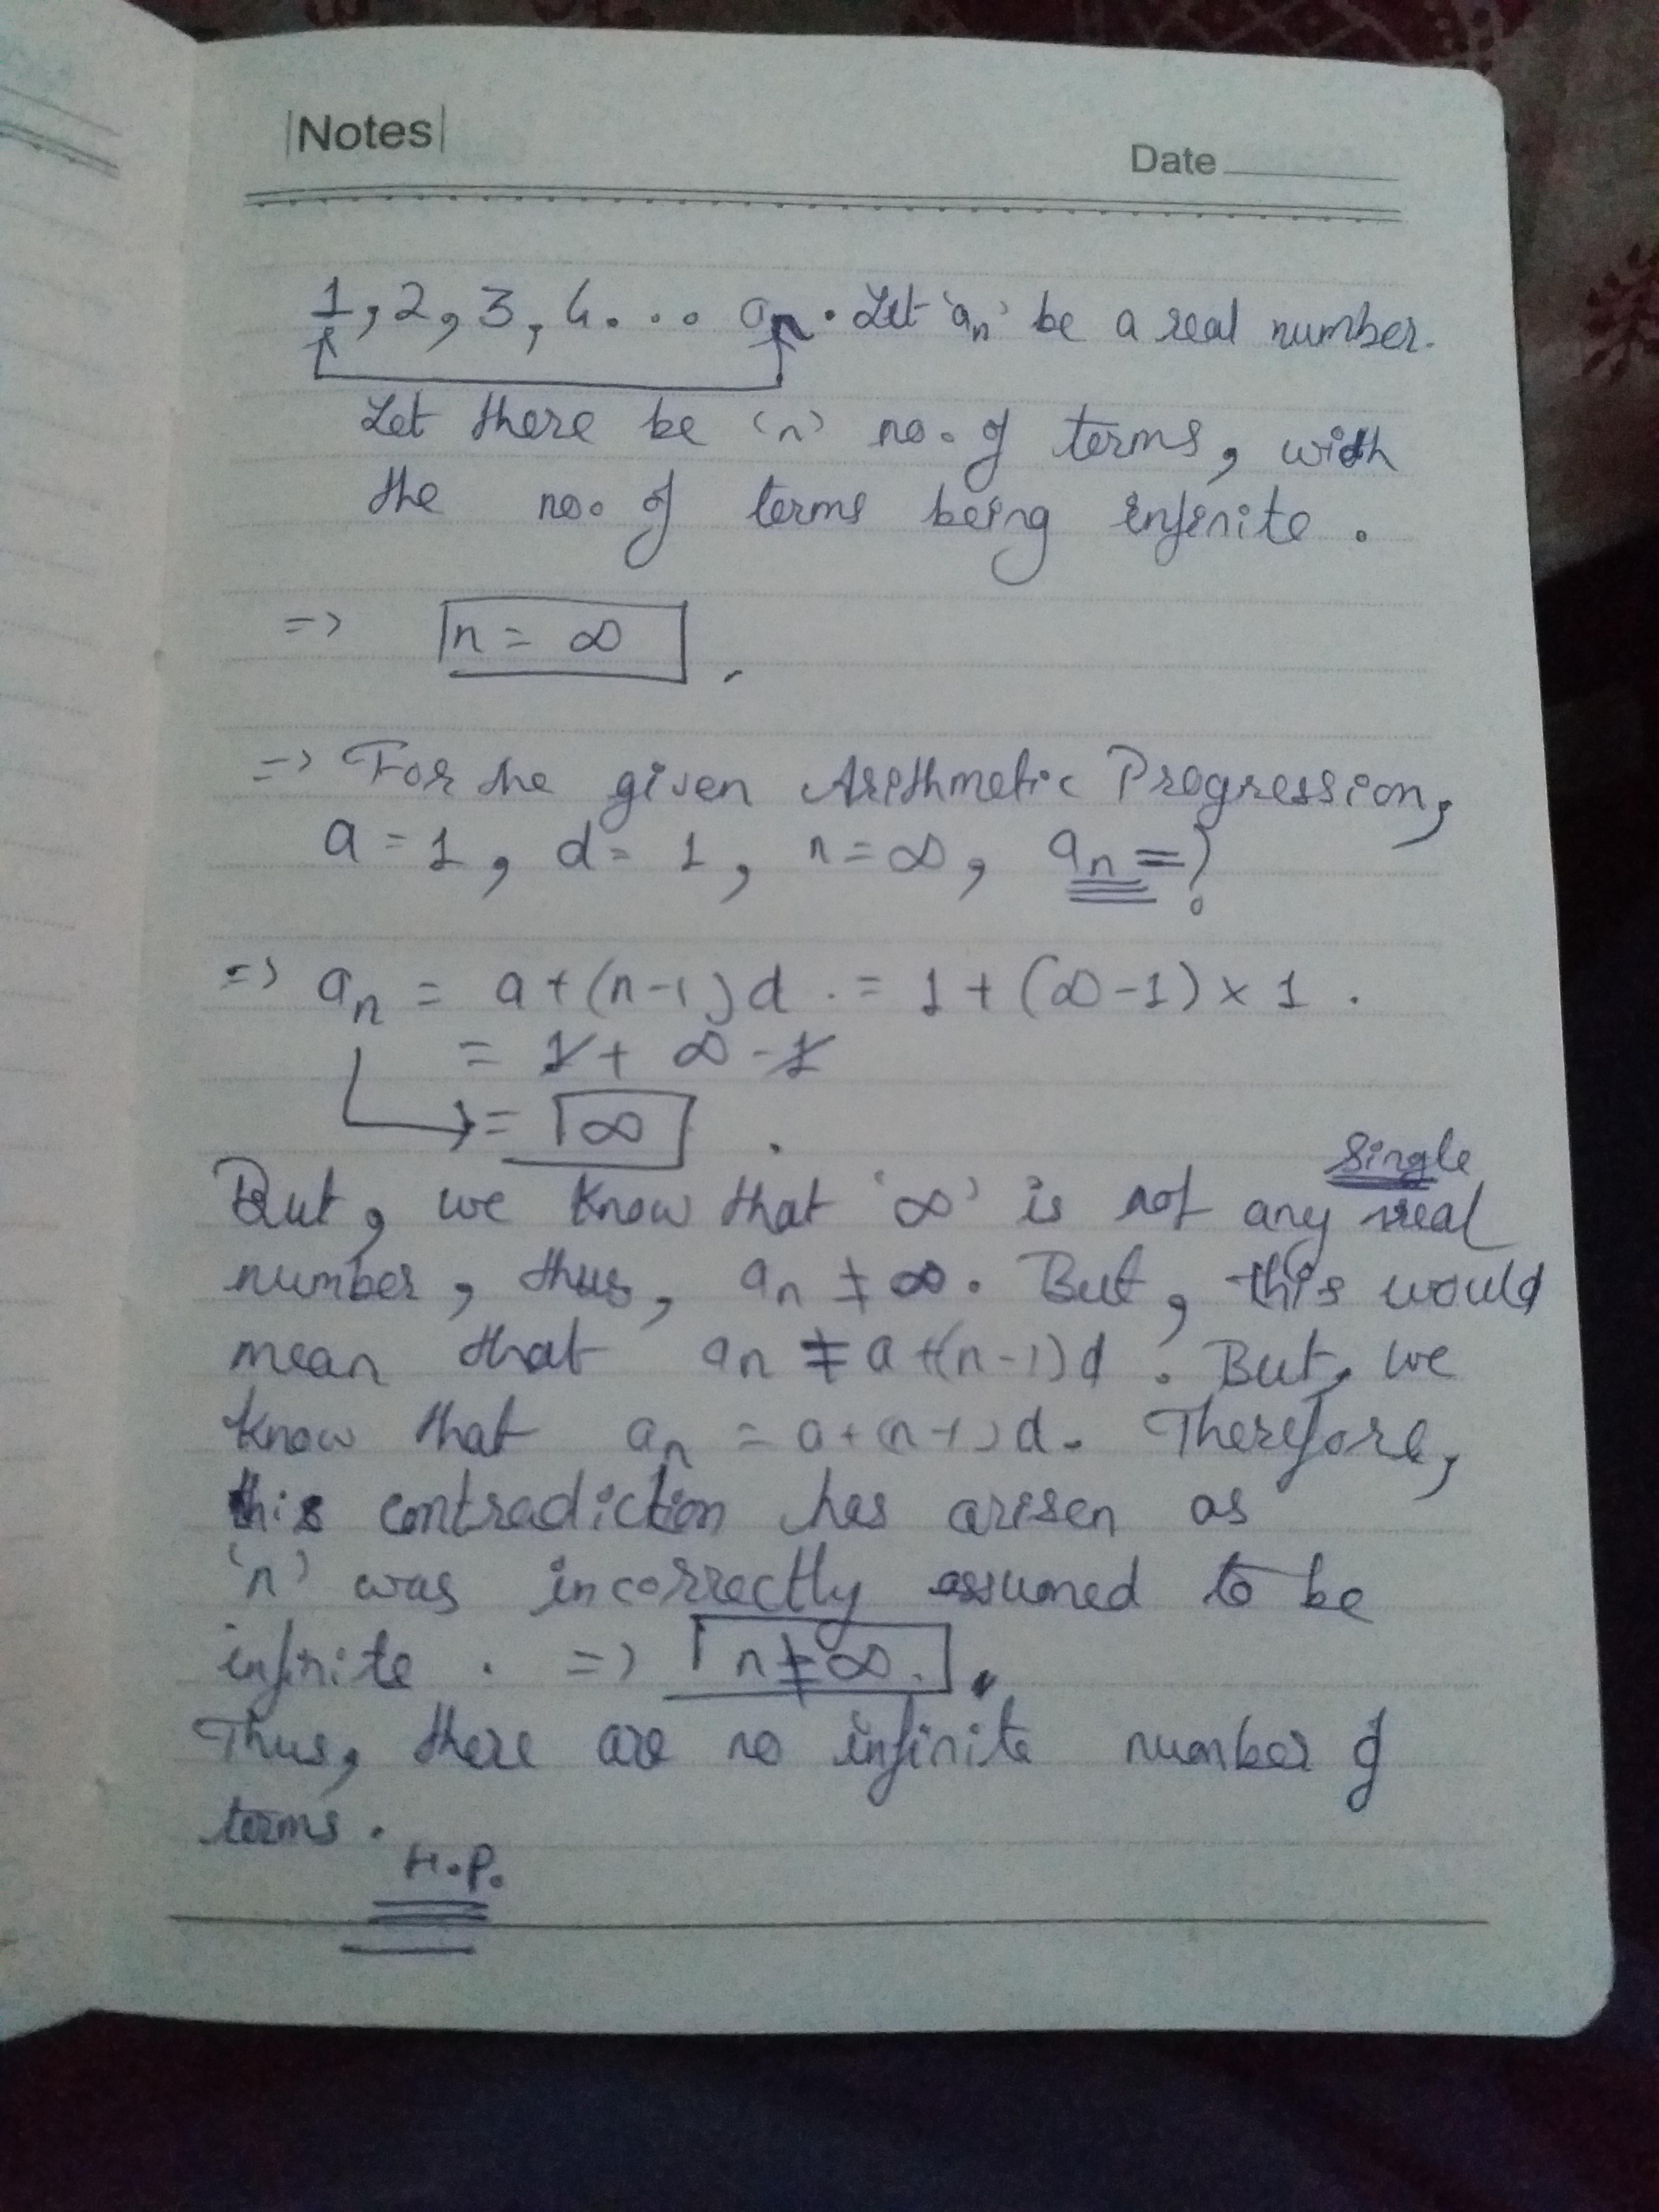 Notes
Date
1, 2, 3, 4 . . . an . Let 'an' be a real number.
Let there be 'n' no. of terms, with
the no. of terms being infinite.
=> n = ∞
=> For the given Arithmetic Progression,
a = 1, d = 1, n = ∞, an = ?
=> an = a + (n-1)d . = 1 + (∞ - 1) × 1 .
= 1 + ∞ - 1
= ∞ .
single
But, we know that '∞' is not any real
number, thus, an ≠ ∞. But, this would
mean that an ≠ a + (n-1)d. But, we
know that an = a + (n-1)d. Therefore,
this contradiction has arisen as
'n' was incorrectly assumed to be
infinite . => n ≠ ∞.
Thus, there are no infinite number of
terms.
H.P.